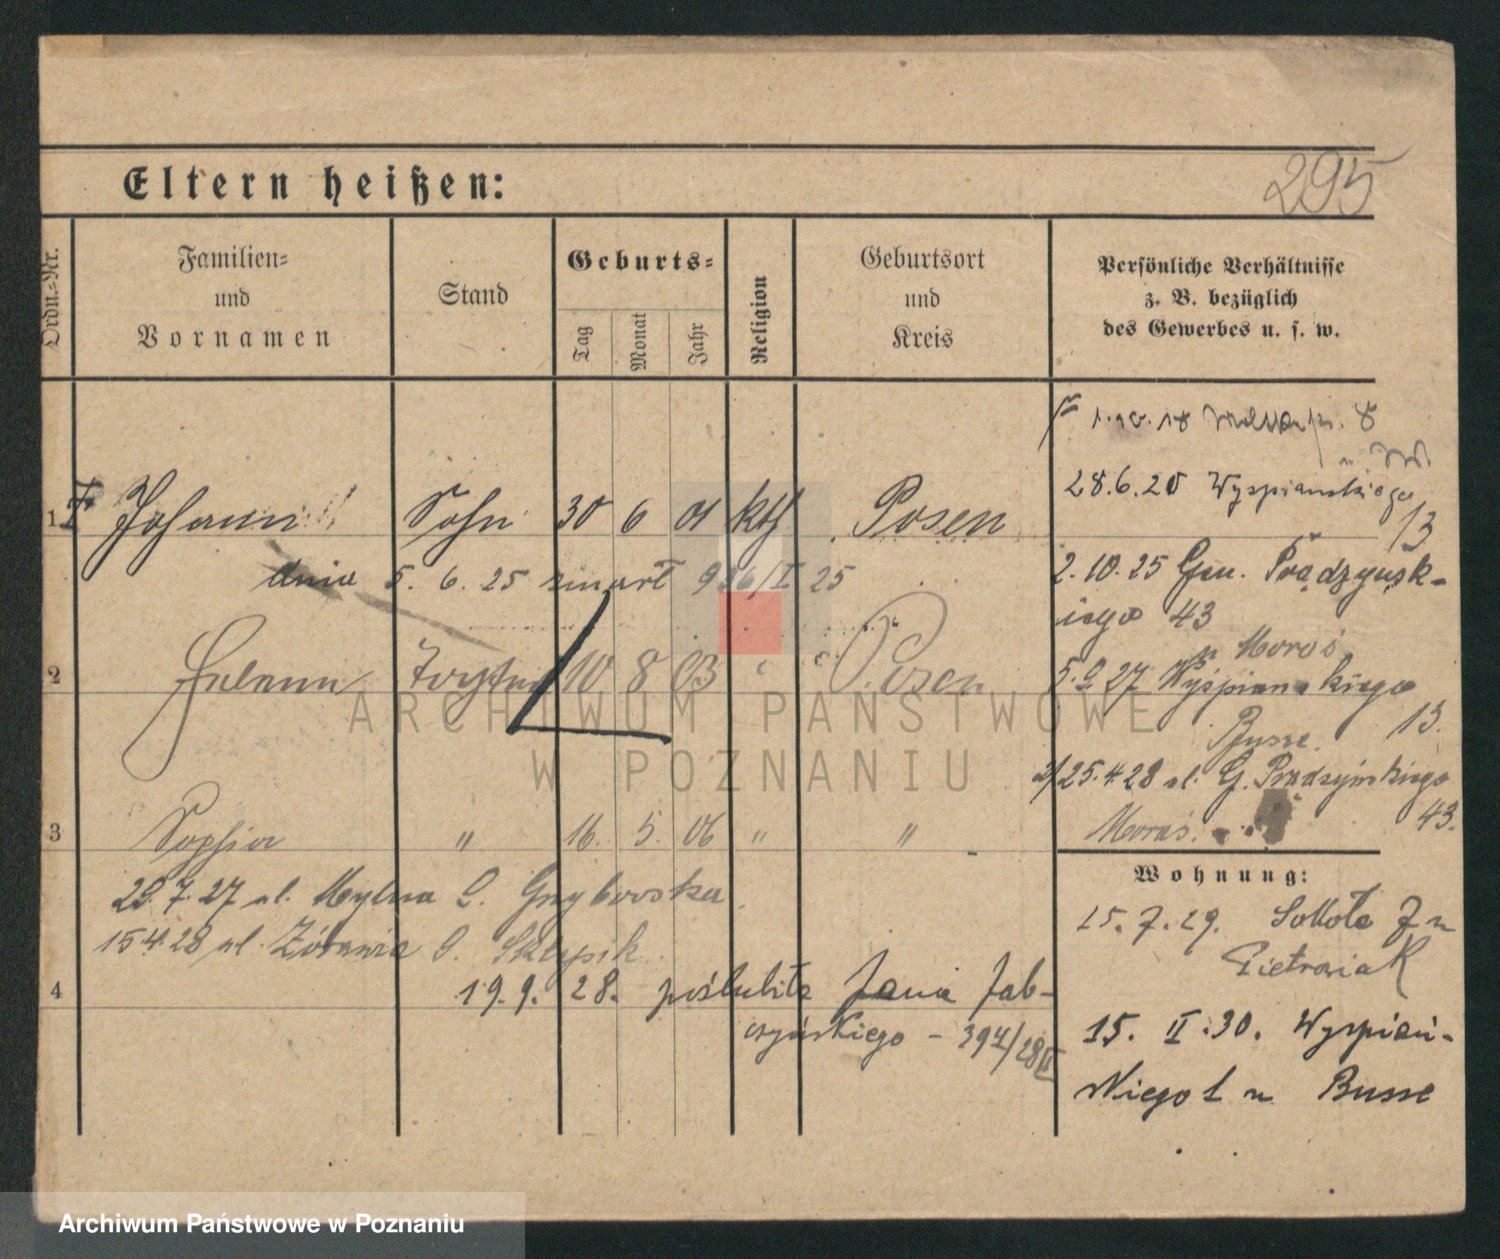 Eltern heißen:
295
Ordn.-Nr.
Familien-
und
Vornamen
Stand
Geburts-
Tag
Monat
Jahr
Religion
Geburtsort
und
Kreis
Persönliche Verhältnisse
z. B. bezüglich
des Gewerbes u. s. w.
1.10.18 8
28.6.20 Wyspianskiego
13
1 Johann Sohn 30 6 01 kth Posen
dnia 5. 6. 25 zmarł 926/I 25
2.10.25 Gen. Prądzynsk-
iego 43
u Moraś
2 Helene Tochter 10 8 03 " Posen
5.9.27 Wyspianskiego
13.
Busse.
2/25.4.28 ul. G. Prądzyńskiego
43.
Moraś.
3 Sophia " 16. 5. 06 " "
29.7.27 ul. Mylna Grzybowska
15.4.28 ul. Żórawia
4
19.9.28. poślubiła Jana Jab-
czyńskiego - 394/28
Wohnung:
15.7.29. Sokoła 7 u
Pietrowiak
15. II. 30. Wyspiań-
skiego 1 u Busse
ARCHIWUM PAŃSTWOWE
W POZNANIU
Archiwum Państwowe w Poznaniu